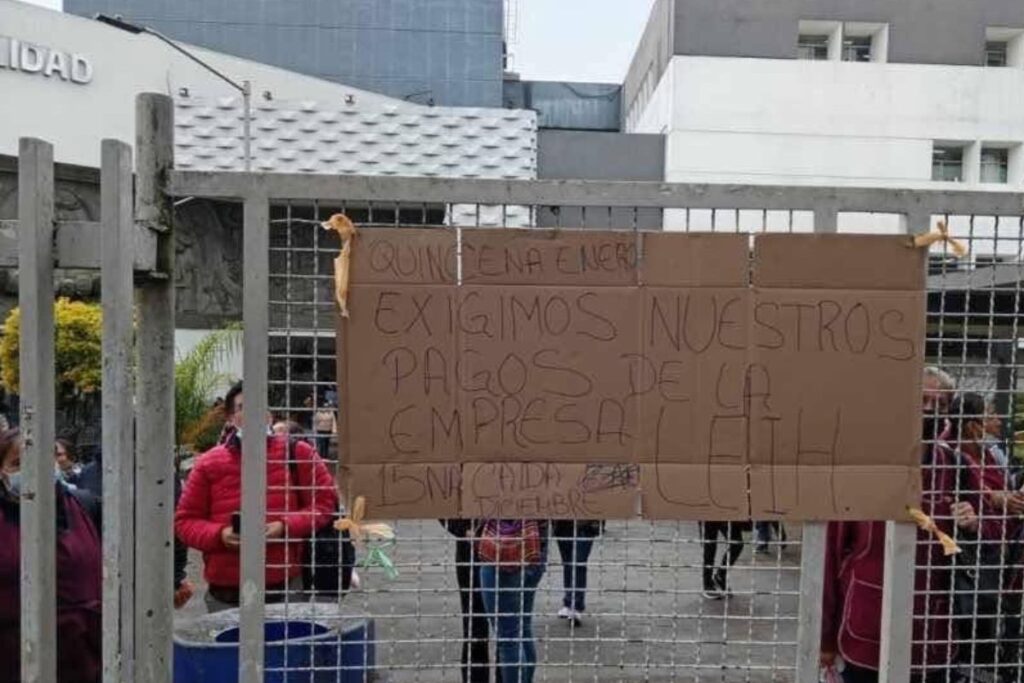 LIDAD
QUINCENA ENERO
EXIGIMOS NUESTROS
PAGOS DE LA
EMPRESA LEIH.
15NA CAIDA
DICIEMBRE